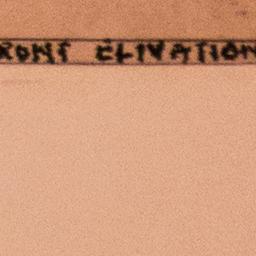 RONT ELIVATION